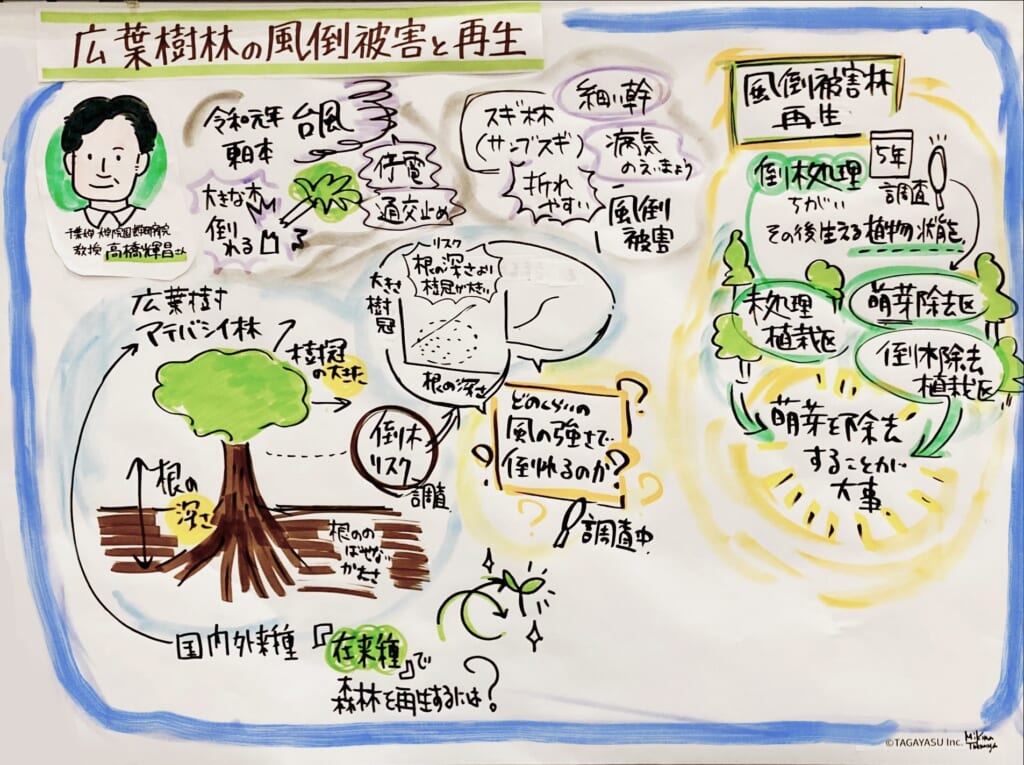 広葉樹林の風倒被害と再生
教授 高橋輝昌さん
令和元年
東日本
台風
大きな木
倒
れる
停電
通交止め
スギ林
(サンブスギ)
細い幹
病気
のえいきょう
折れ
やすい
風倒
被害
風倒被害林
再生
倒木処理
ちがい
5年
調査
その後生える植物状態
未処理
植栽区
萌芽除去区
倒木除去
植栽区
萌芽を除去
することが
大事
広葉樹
マテバシイ林
樹冠
の大きさ
根の
深さ
倒木
リスク
調査
リスク
根の深さより
樹冠が大きい
大きさ
樹冠
根の深さ
どのくらいの
風の強さで
倒れるのか?
調査中
国内外来種
『在来種』で
森林を再生するには?
©TAGAYASU Inc.